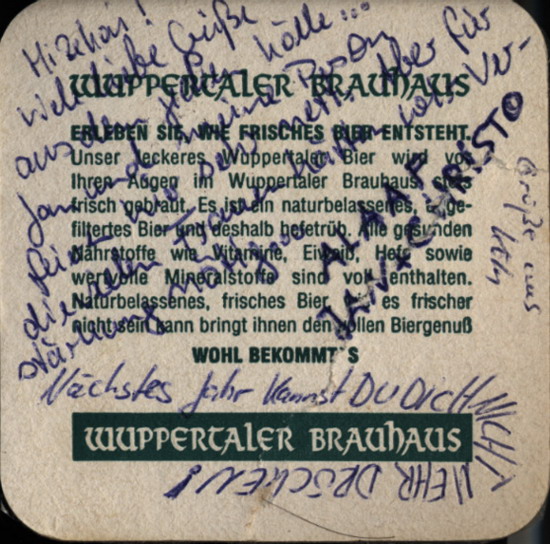 WUPPERTALER BRAUHAUS
ERLEBEN SIE, WIE FRISCHES BIER ENTSTEHT.
Unser leckeres Wuppertaler Bier wird vor
Ihren Augen im Wuppertaler Brauhaus stets
frisch gebraut. Es ist ein naturbelassenes, unge-
filtertes Bier und deshalb hefetrüb. Alle gesunden
Nährstoffe wie Vitamine, Eiweiß, Hefe sowie
wertvolle Mineralstoffe sind voll enthalten.
Naturbelassenes, frisches Bier, es frischer
nicht sein kann bringt ihnen den vollen Biergenuß
WOHL BEKOMMT'S
WUPPERTALER BRAUHAUS
viele liebe Grüße
aus dem hölle...
Jan und meine Person
feiern sehr nett. Aber für
die Ver-
stärkung
ALAAF
JAN & CHRISTO
Grüße aus
Nächstes Jahr kannst DU DICH NICHT
MEHR DRÜCKEN!